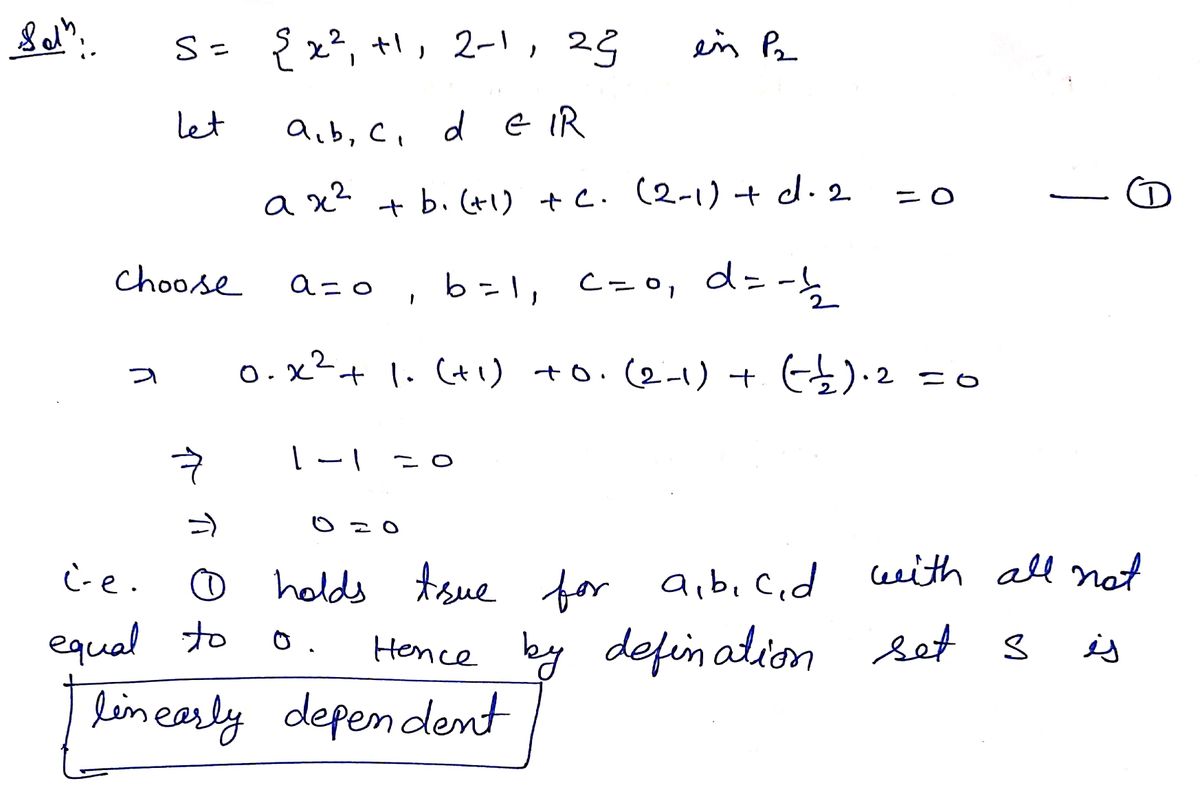 Solⁿ:. S = { x², +1, 2-1, 2} ein P₂
Let a,b, c, d ∈ IR
a x² + b. (+1) + c. (2-1) + d. 2 = 0 — ①
Choose a=0, b=1, c=0, d= -1/2
⇒ 0. x² + 1. (+1) + 0. (2-1) + (-1/2).2 = 0
⇒ 1 - 1 = 0
⇒ 0 = 0
i.e. ① holds true for a,b,c,d with all not
equal to 0. Hence by defination set S is
linearly dependent